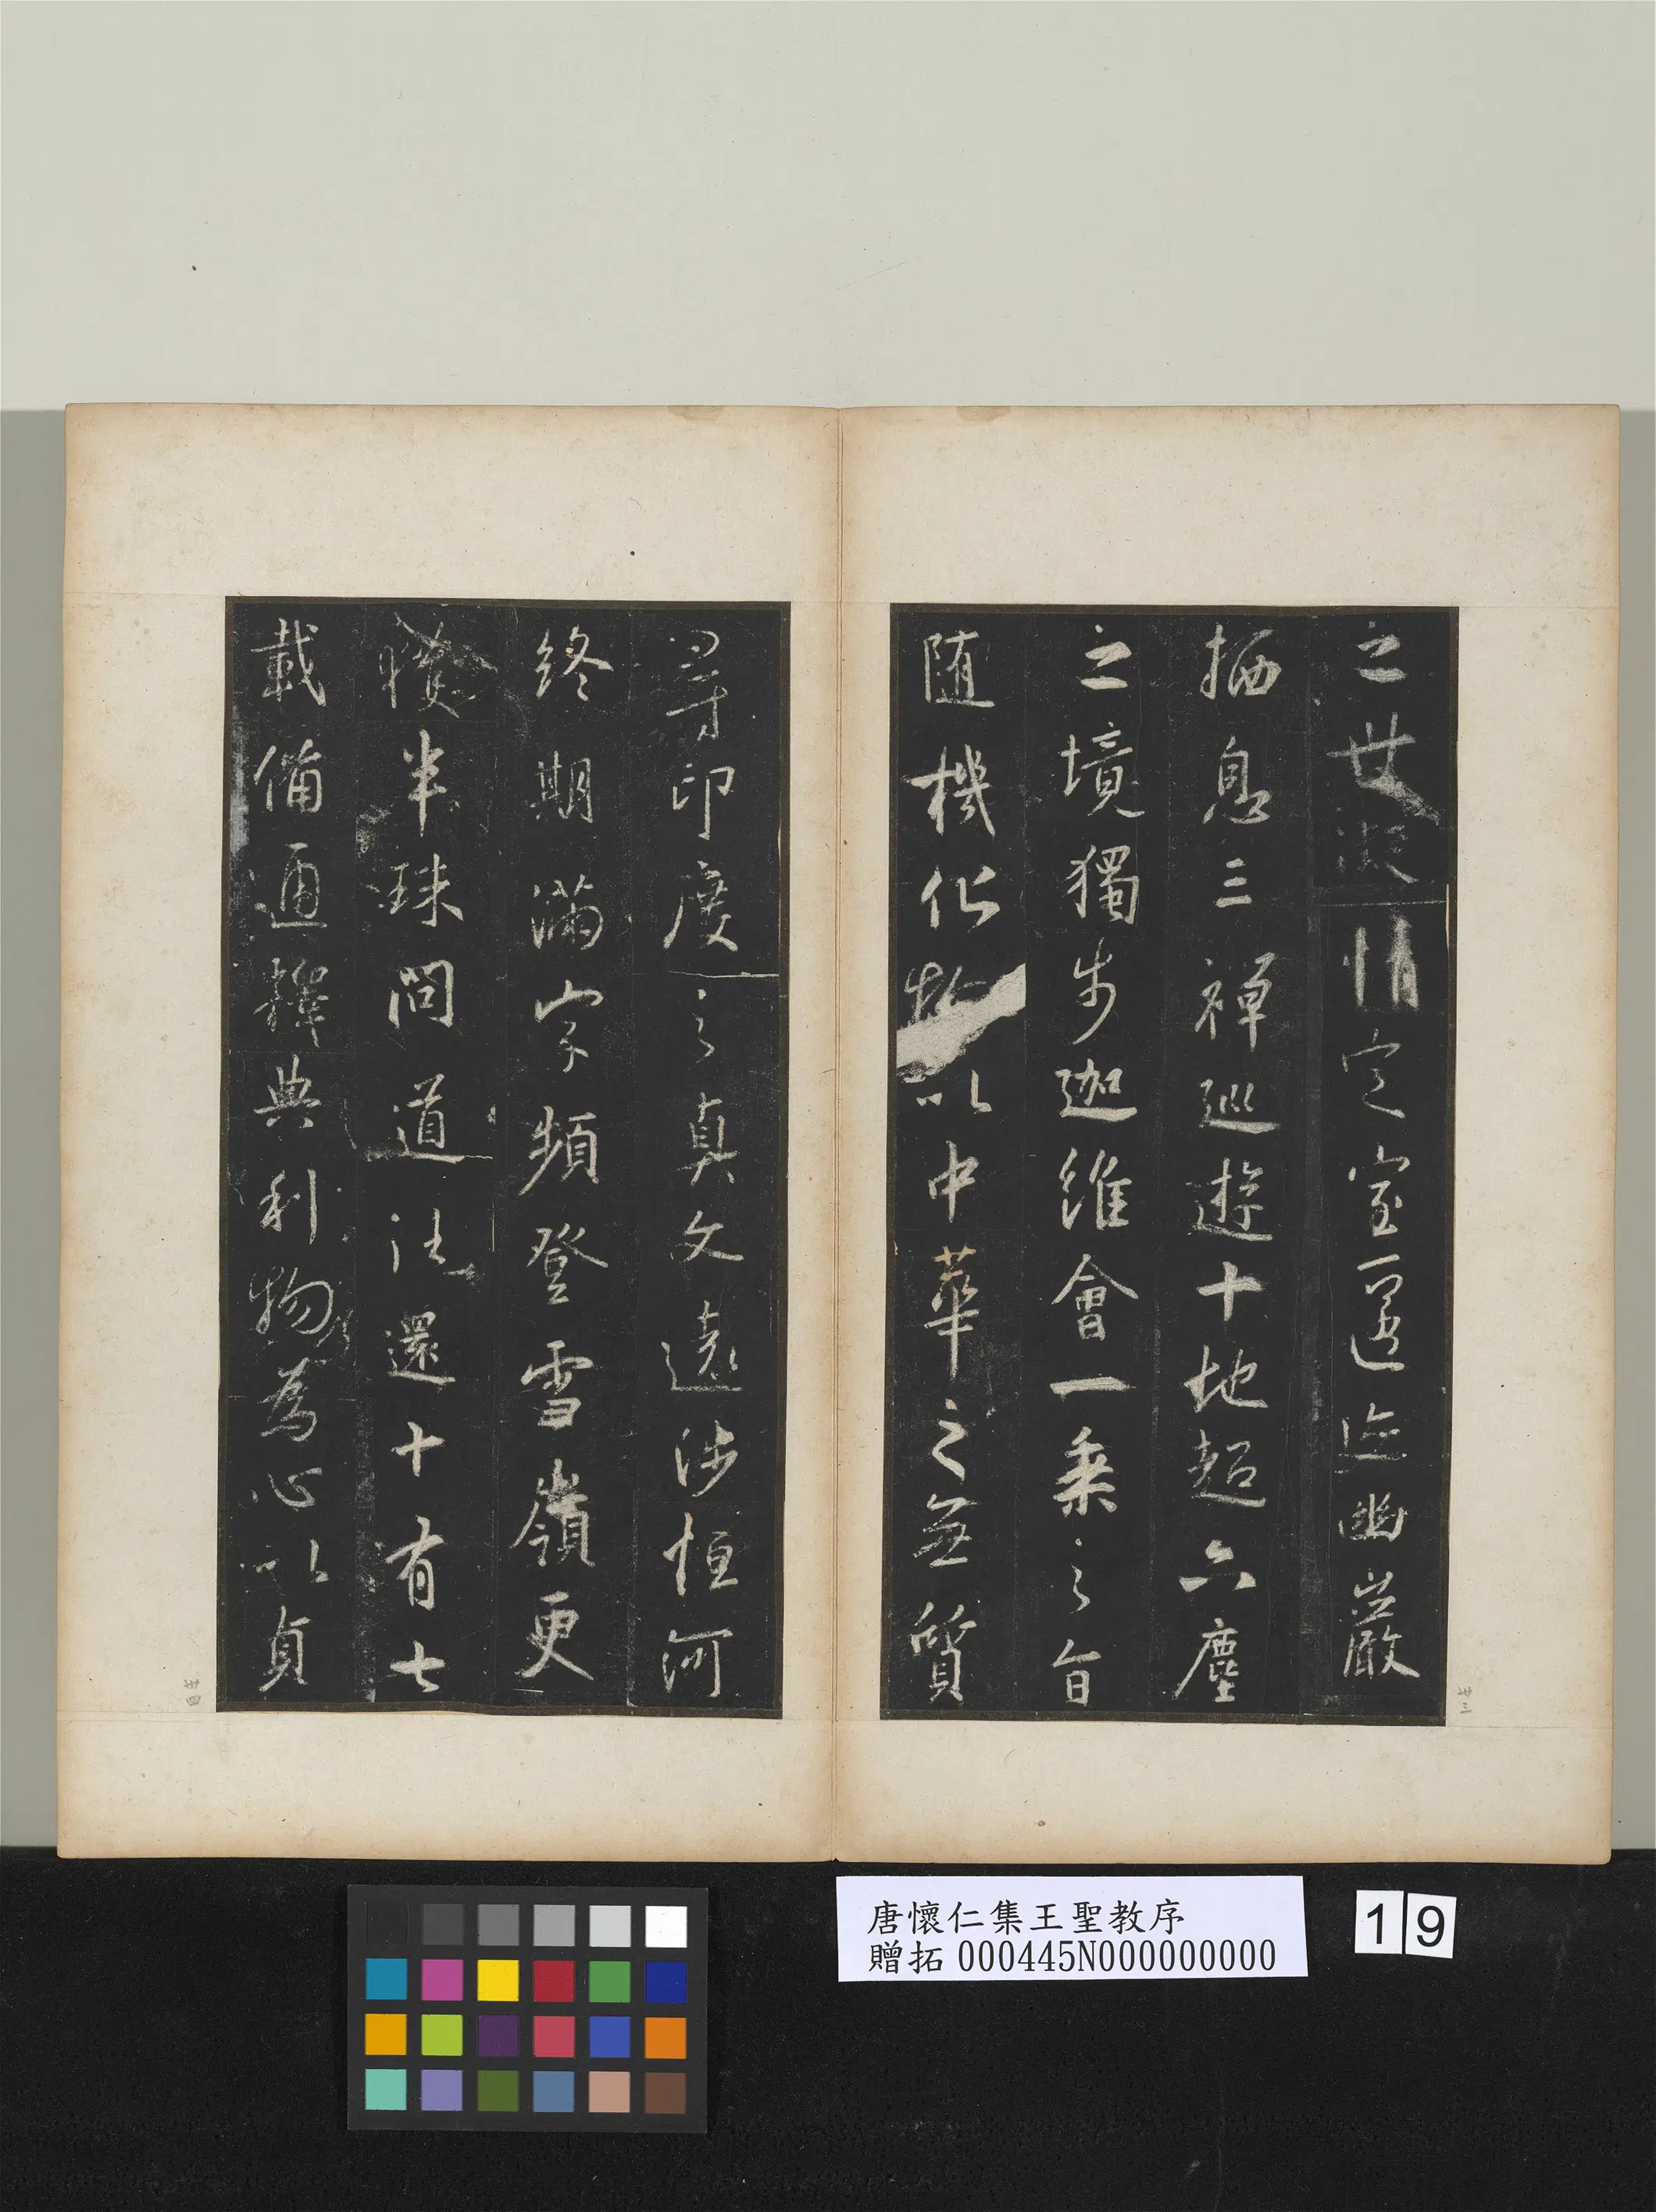 之世凝情定室匿迹幽巖
栖息三禪巡遊十地超六塵
之境獨步迦維會一乘之旨
随機化物以中華之無質
尋印度之真文遠涉恒河
終期滿字頻登雪嶺更
獲半珠問道法還十有七
載備通釋典利物為心以貞
卅三
卅四
唐懷仁集王聖教序
贈拓 000445N000000000
19